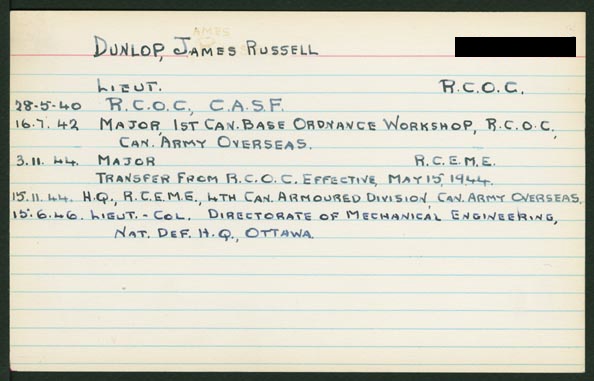 DUNLOP, JAMES RUSSELL
LIEUT. R.C.O.C.
28-5-40 R.C.O.C., C.A.S.F.
16.7.42 MAJOR, 1ST CAN. BASE ORDNANCE WORKSHOP, R.C.O.C.,
CAN. ARMY OVERSEAS.
3.11.44. MAJOR R.C.E.M.E.
TRANSFER FROM R.C.O.C. EFFECTIVE, MAY 15, 1944.
15.11.44. H.Q., R.C.E.M.E., 4TH CAN. ARMOURED DIVISION, CAN. ARMY OVERSEAS.
15.6.46. LIEUT.-COL. DIRECTORATE OF MECHANICAL ENGINEERING,
NAT. DEF. H.Q., OTTAWA.